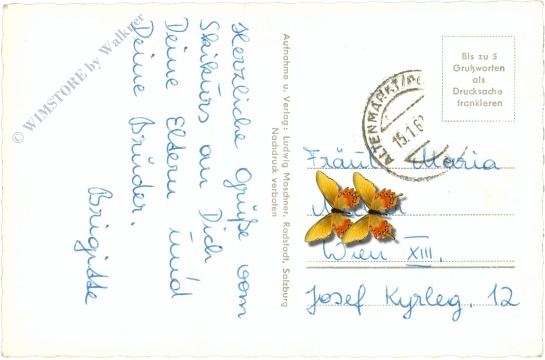 Herzliche Grüße vom
Skikurs an Dich
Deine Eltern und
Deine Brüder.
Brigitte
Aufnahme u. Verlag: Ludwig Moschner, Radstadt, Salzburg
Nachdruck verboten
Bis zu 5
Grußworten
als
Drucksache
frankieren
ALTENMARKT/PO
15.1.6
Fräul. Maria
Wien XIII.
Josef Kyrleg. 12
© WIMSTORE by Walkner